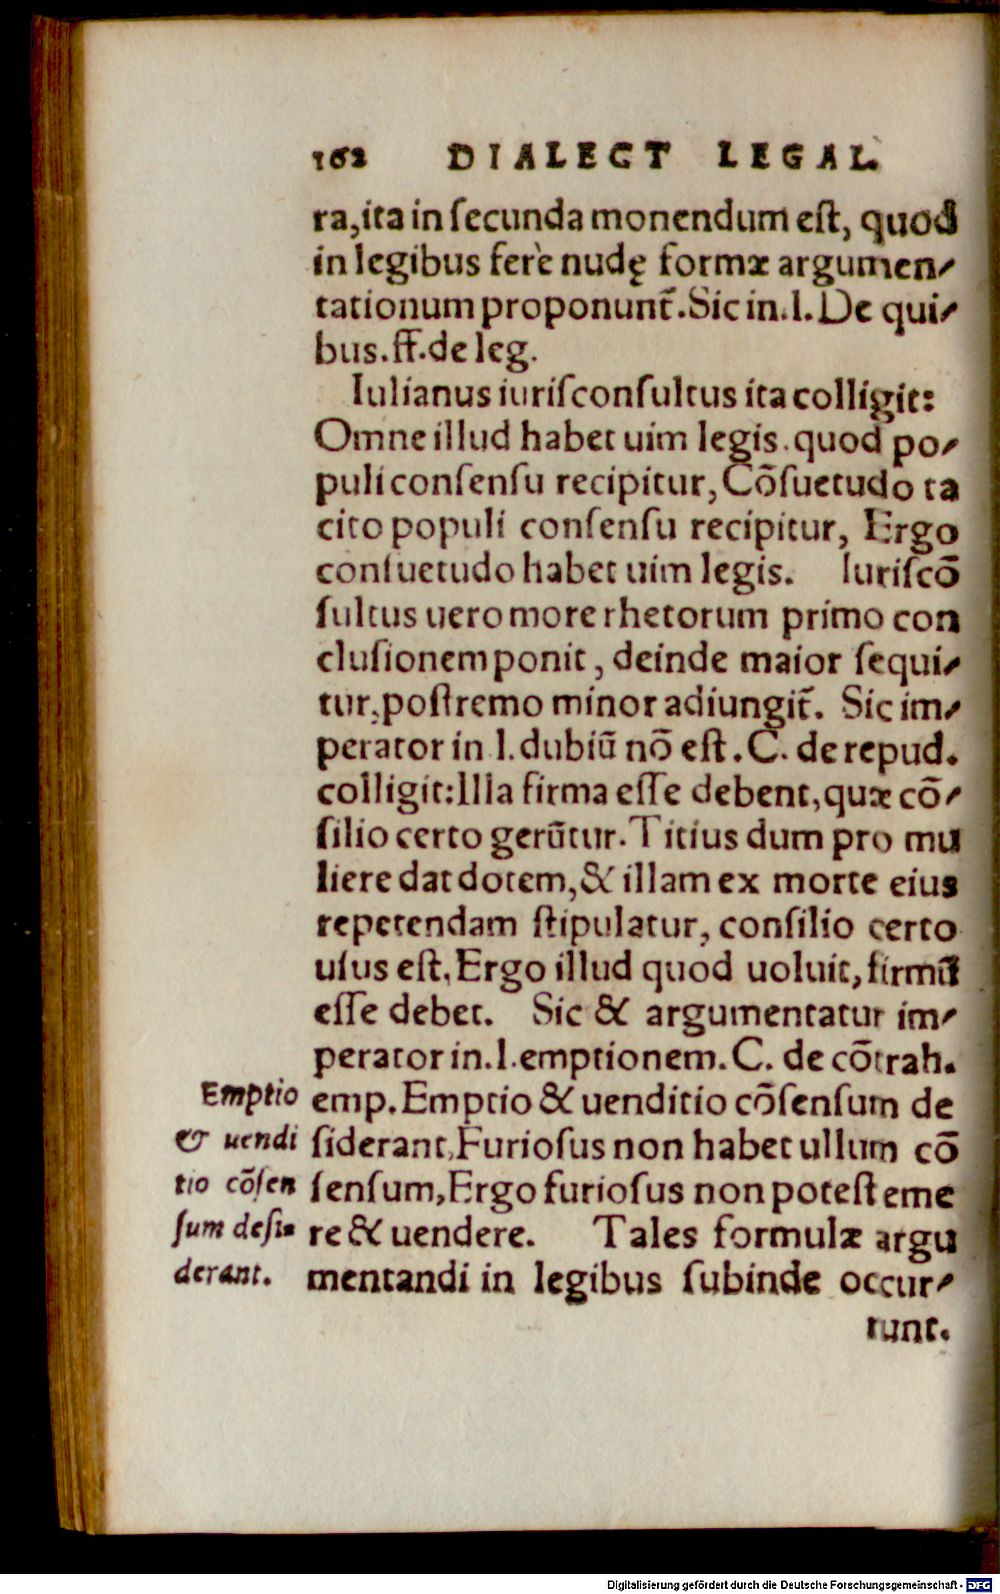 162 DIALECT LEGAL.
ra,ita in ſecunda monendum eſt, quod
in legibus ferè nudę formæ argumen⸗
tationum proponunt̃.Sic in.l.De qui⸗
bus.ff.de leg.
Iulianus iuriſconſultus ita colligit:
Omne illud habet uim legis.quod po⸗
puli conſenſu recipitur,Cõſuetudo ta
cito populi conſenſu recipitur, Ergo
conſuetudo habet uim legis. Iuriſcõ
ſultus uero more rhetorum primo con
cluſionem ponit, deinde maior ſequi⸗
tur,poſtremo minor adiungit̃. Sic im⸗
perator in l.dubiũ nõ eſt.C. de repud.
colligit:Illa firma eſſe debent,quæ cõ⸗
ſilio certo gerũtur.Titius dum pro mu
liere dat dotem,& illam ex morte eius
repetendam ſtipulatur, conſilio certo
uſus eſt,Ergo illud quod uoluit,firmũ
eſſe debet. Sic & argumentatur im⸗
perator in.l.emptionem.C. de cõtrah.
emp.Emptio & uenditio cõſenſum de
ſiderant,Furioſus non habet ullum cõ
ſenſum,Ergo furioſus non poteſt eme
re & uendere. Tales formulæ argu
mentandi in legibus ſubinde occur⸗
runt.
Emptio
& uendi
tio cõſen
ſum deſi⸗
derant.
Digitalisierung gefördert durch die Deutsche Forschungsgemeinschaft - DFG